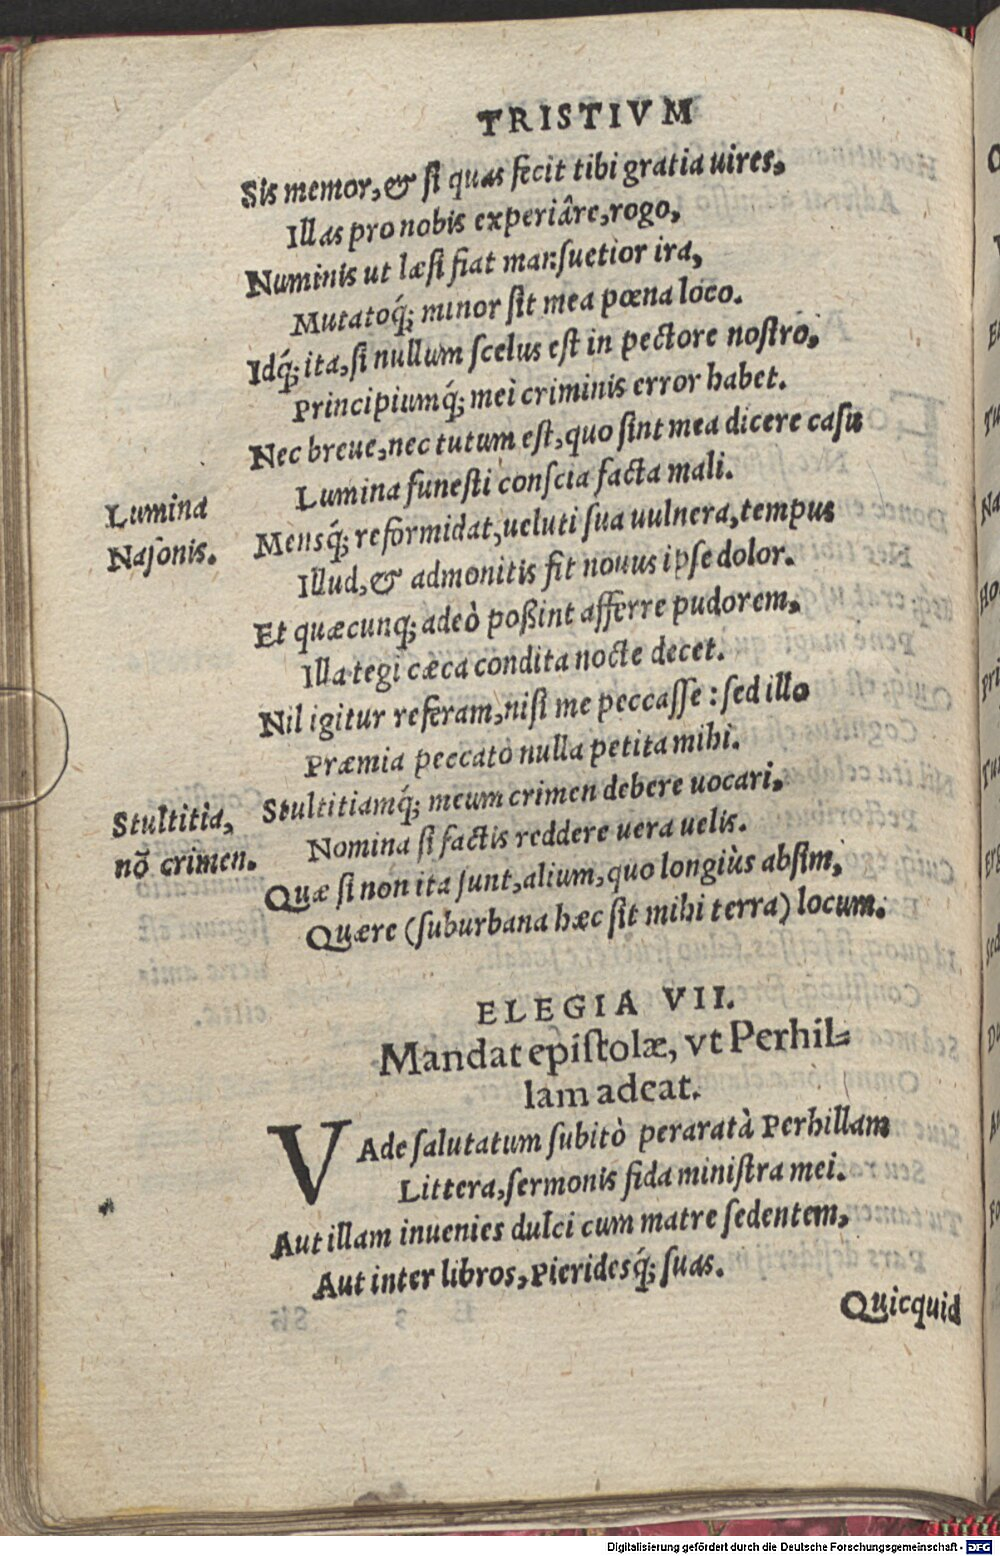 TRISTIVM
Sis memor, & si quas fecit tibi gratia uires,
Illas pro nobis experiâre, rogo,
Numinis ut læsi fiat mansuetior ira,
Mutatoq́; minor sit mea pœna loco.
Idq́; ita, si nullum scelus est in pectore nostro,
Principiumq́; mei criminis error habet.
Nec breue, nec tutum est, quo sint mea dicere casu
Lumina funesti conscia facta mali.
Lumina
Nasonis.
Mensq́; reformidat, ueluti sua uulnera, tempus
Illud, & admonitis fit nouus ipse dolor.
Et quæcunq; adeò poßint afferre pudorem,
Illa tegi cæca condita nocte decet.
Nil igitur referam, nisi me peccasse: sed illo
Præmia peccato nulla petita mihi.
Stultitia,
nõ crimen.
Stultitiamq́; meum crimen debere uocari,
Nomina si factis reddere uera uelis.
Quæ si non ita sunt, alium, quo longiùs absim,
Quære (suburbana hæc sit mihi terra) locum.
ELEGIA VII.
Mandat epistolæ, vt Perhil=
lam adeat.
VAde salutatum subitò perarata Perhillam
Littera, sermonis fida ministra mei.
Aut illam inuenies dulci cum matre sedentem,
Aut inter libros, Pieridesq́; suas.
Quicquid
Digitalisierung gefördert durch die Deutsche Forschungsgemeinschaft - DFG